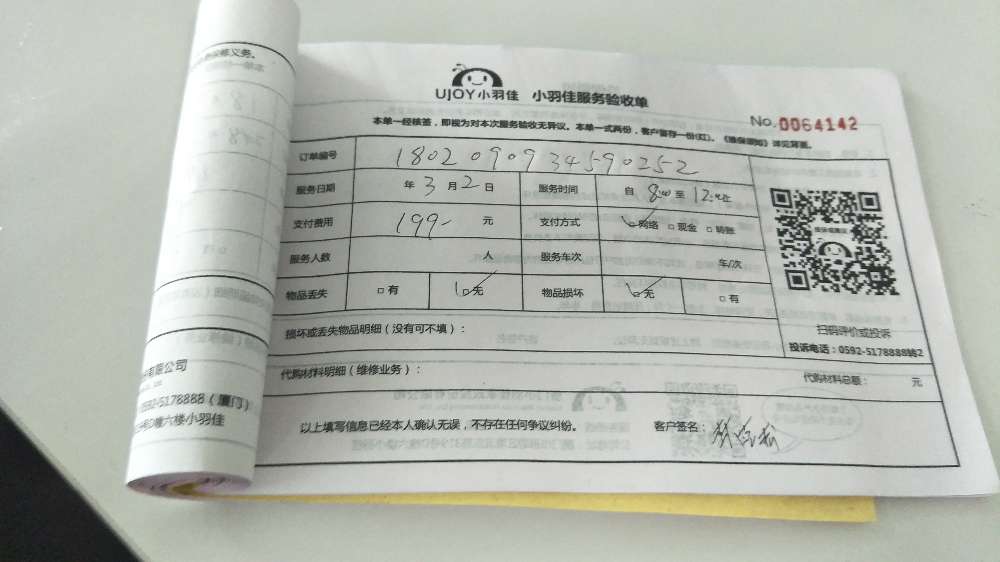 UJOY小羽佳 小羽佳服务验收单
No. 0064142
本单一经核签，即视为对本次服务验收无异议。本单一式两份，客户留存一份(红)。《维保须知》详见背面。
订单编号 180209093459 0252
服务日期 年 3 月 2 日 服务时间 自 8:00 至 12:00止
支付费用 199- 元 支付方式 网络 现金 转账
服务人数 人 服务车次 车/次
物品丢失 有 无 物品损坏 无 有
损坏或丢失物品明细（没有可不填）：
扫码评价或投诉
投诉电话：0592-5178888转2
代购材料明细（维修业务）： 代购材料总额： 元
以上填写信息已经本人确认无误，不存在任何争议纠纷。 客户签名：
有限公司
0592-5178888（厦门）
六楼小羽佳